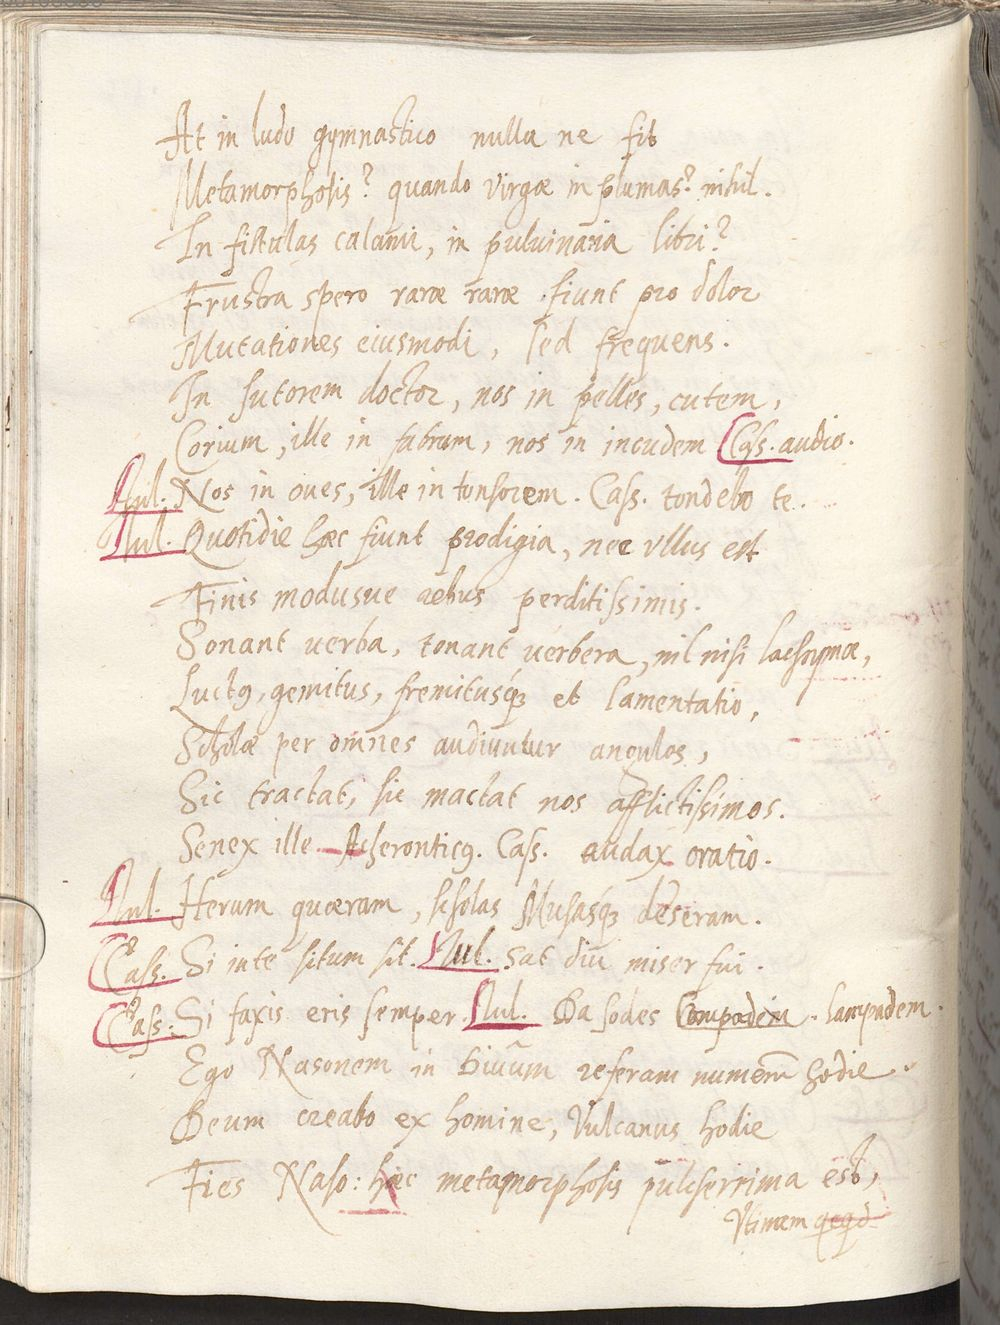 At in ludo gymnastico nulla ne fit
Metamorphosis? quando virgæ in plumas? nihil.
In fistulas calami, in puluinaria libri?
Frustra spero raræ raræ fiunt pro dolor
Mutationes eiusmodi, sed frequens.
In sutorem doctor, nos in pelles, cutem,
Corium, ille in fabrum, nos in incudem Cass. audio.
Aul. Nos in oues, ille in tonsorem. Cass. tondebo te.
Aul. Quotidie hæc fiunt prodigia, nec vllus est
Finis modusue rebus perditissimis.
Sonant verba, tonant verbera, nil nisi lachrymæ,
Luctꝰ, gemitus, fremitusq́ꝫ et lamentatio,
Scholæ per omnes audiuntur angulos,
Sic tractat, sic mactat nos afflictissimos.
Senex ille Acheronticꝰ. Cass. audax oratio.
Aul. Herum quæram, scholas Musasq́ꝫ deseram.
Cass. Si in te situm sit. Aul. Sat diu miser fui.
Cass: Si faxis eris semper. Aul. Da sodes Compadem. lampadem.
Ego Nasonem in Diuūm referam numerū hodie.
Deum creabo ex homine, Vulcanus hodie
Fies Naso: hæc metamorphosis pulcherrima est,
Vtinam